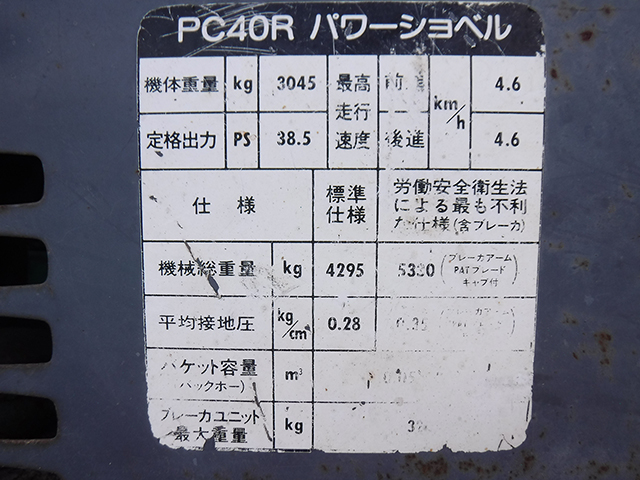 PC40R パワーショベル
機体重量 kg 3045 最高 前 4.6
走行 km/h
定格出力 PS 38.5 速度 後進 4.6
仕様 標準仕様 労働安全衛生法
による最も不利
な仕様(含ブレーカ)
機械総重量 kg 4295 5330 (ブレーカアーム
PATブレード
キャブ付)
平均接地圧 kg/cm 0.28
バケット容量 m³
(バックホー)
ブレーカユニット
最大重量 kg